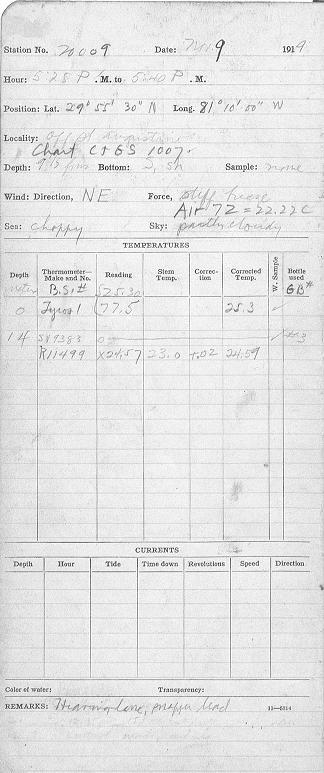 Station No. 20009 Date: 9 1914
Hour: 5:25 P .M. to 5:40 P .M.
Position: Lat. 29° 55' 30" N Long. 81° 10' 00" W
Locality: Off St Augustine
Chart C+GS 1007.
Depth: Bottom: S, Sh Sample: none
Wind: Direction, NE Force, stiff breeze
Air 72 = 22.22C
Sea: choppy Sky: partly cloudy
TEMPERATURES
Depth Thermometer— Make and No. Reading Stem Temp. Correction Corrected Temp. W. Sample Bottle used
B.S.# 25.30 GB#
0 Tycos 1 77.5 25.3 ✓
14 SV9383 0 #3
R11499 x24.57 23.0 +.02 24.59
CURRENTS
Depth Hour Tide Time down Revolutions Speed Direction
Color of water: Transparency:
REMARKS: snapper lead 11—6814